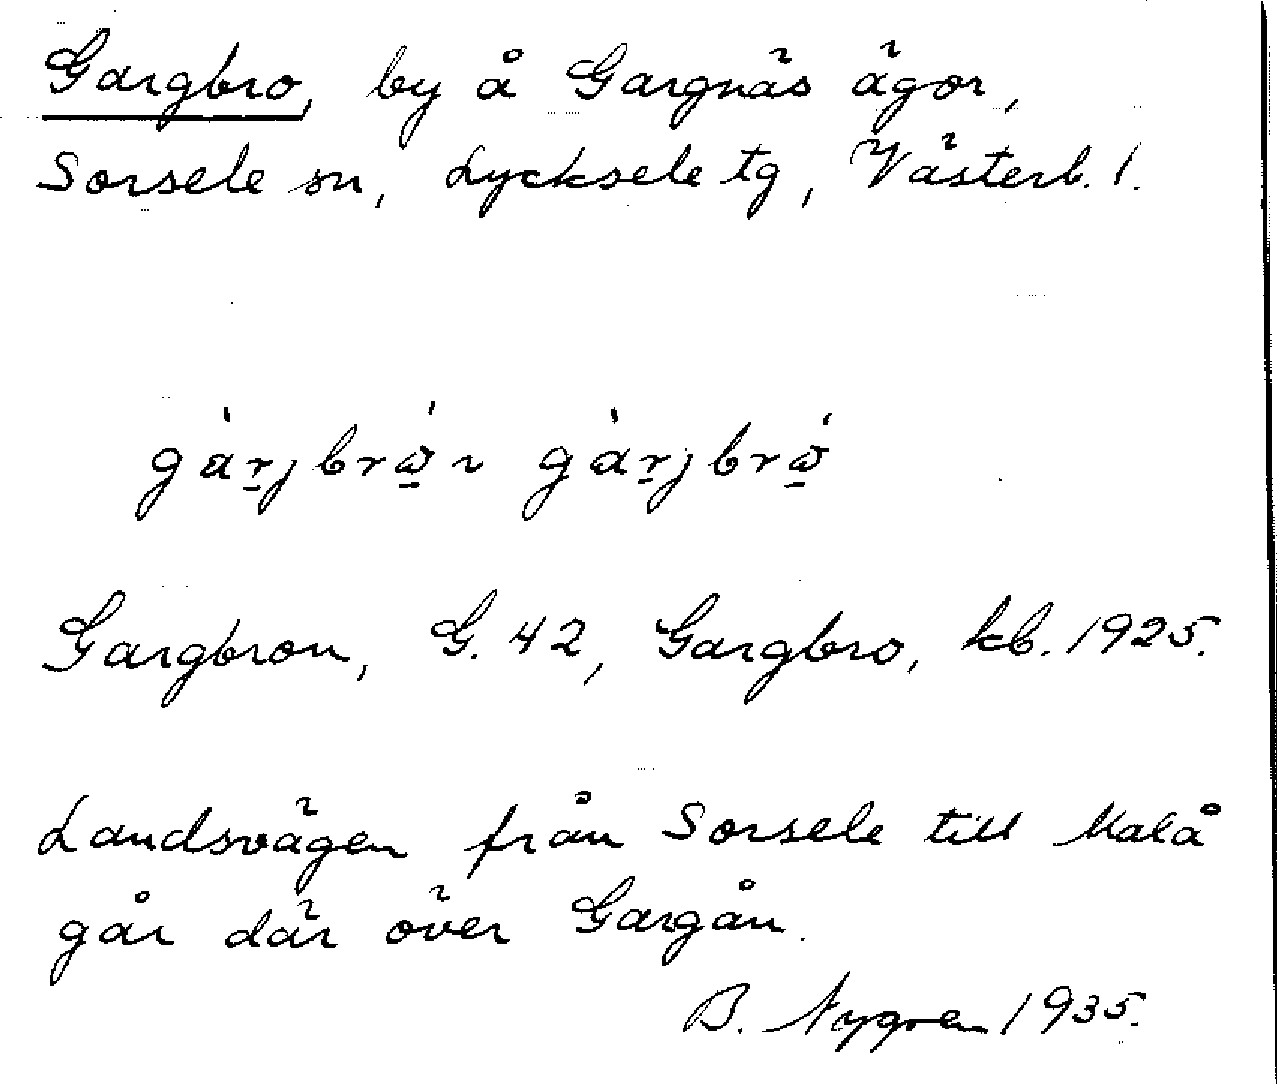 Gargbro, by å Gargnäs ägor,
Sorsele sn, Lycksele tg, Västerb. l.
gàr̲jbrώ̲n gàr̲jbrώ̲
Gargbron, G. 42, Gargbro, kb. 1925.
Landsvägen från Sorsele till Malå
går där över Gargån.
B. Nygren 1935.